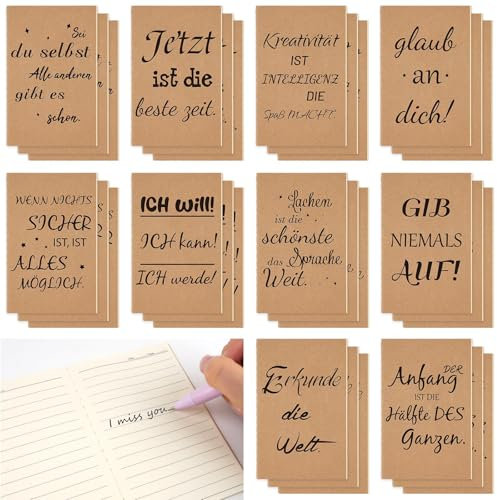 Sei
du selbst
Alle anderen
gibt es
schon.
Jetzt
ist die
beste zeit.
Kreativität
IST
INTELLIGENZ
DIE
Spaß MACHT.
glaub
an
dich!
WENN NICHTS
SICHER
IST, IST
ALLES
MÖGLICH.
ICH will!
ICH kann!
ICH werde!
Lachen
ist die
schönste
das Sprache
Weit.
GIB
NIEMALS
AUF!
I miss you
Erkunde
die
Welt.
Anfang DER
IST DIE
Hälfte DES
Ganzen.